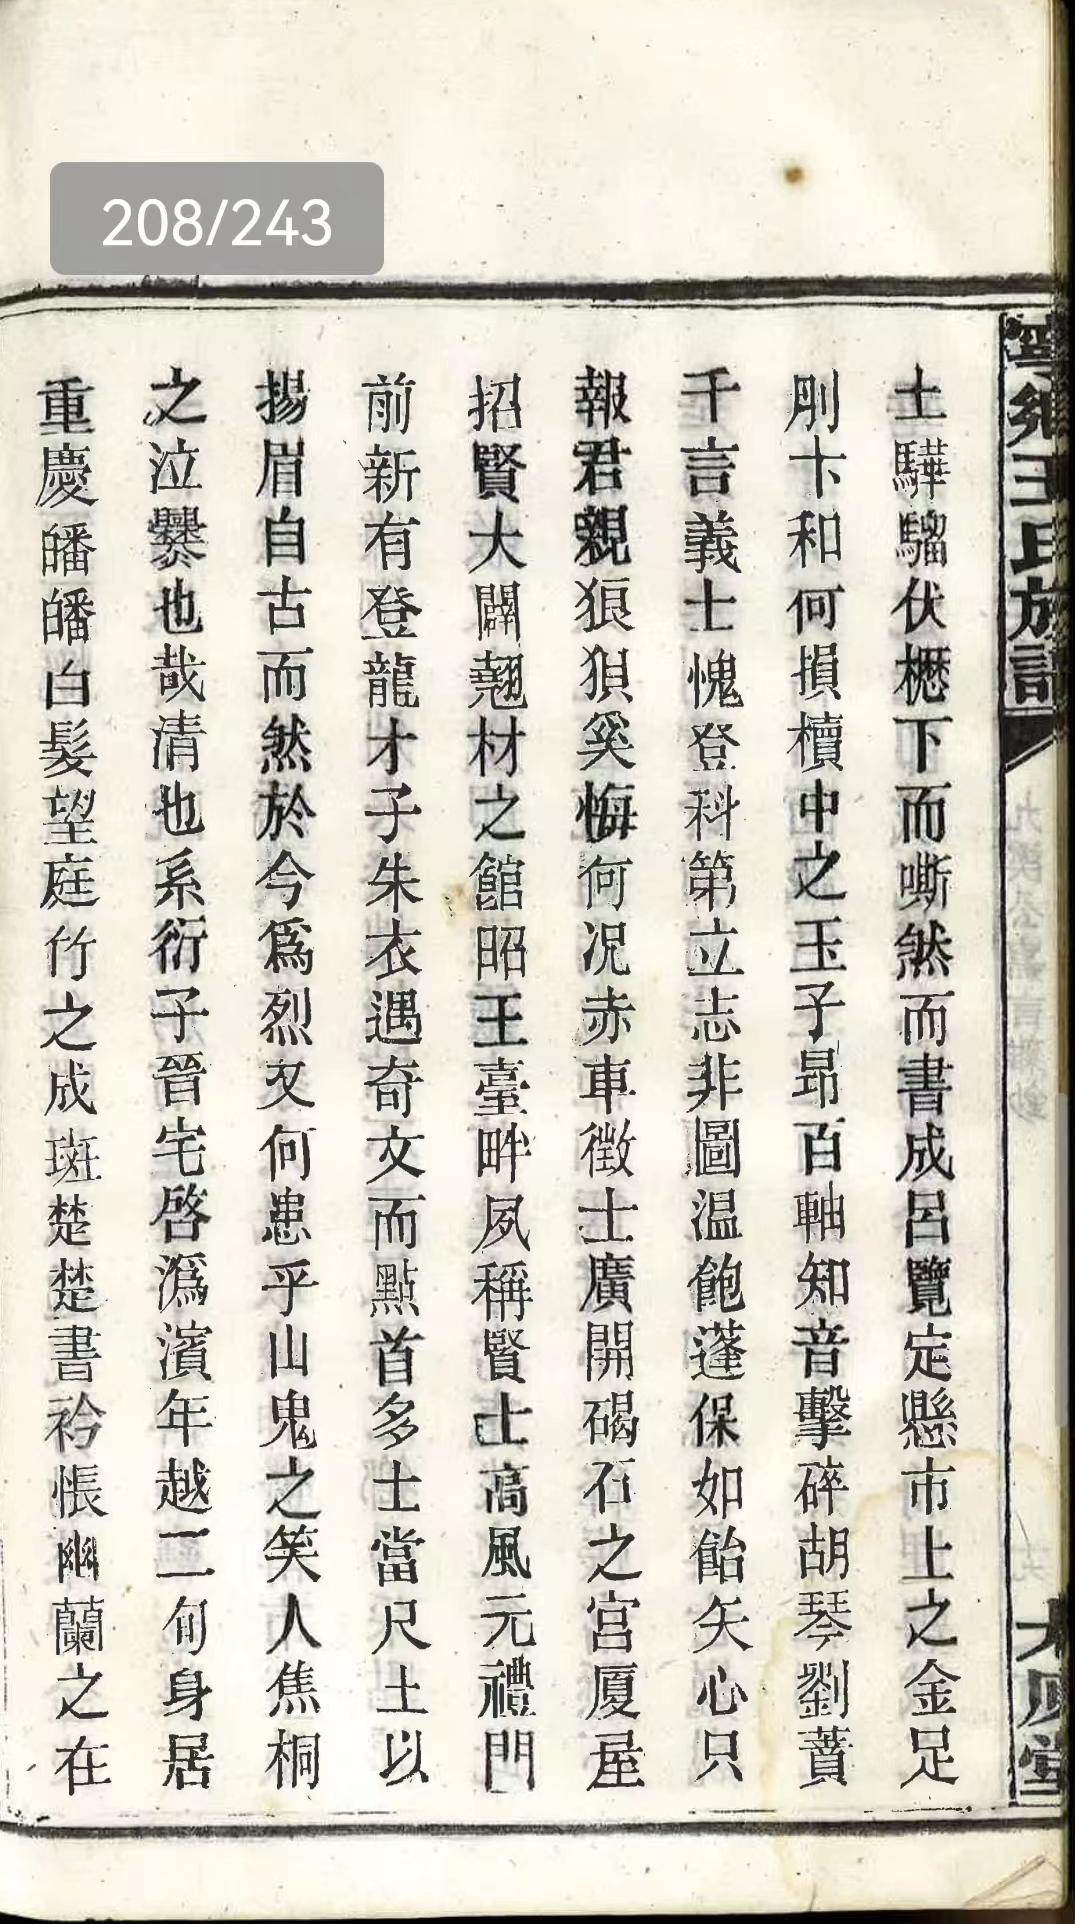 208/243
寧鄉王氏族譜
大原堂
土驊騮伏櫪下而嘶然而書成呂覽定懸市上之金足
刖卞和何損櫝中之玉子昻百軸知音擊碎胡琴劉蕡
千言義士愧登科第立志非圖溫飽蓬保如飴矢心只
報君親狼狽奚悔何况赤車徵士廣開碣石之宫厦屋
招賢大闢翹材之館昭王臺畔夙稱賢士高風元禮門
前新有登龍才子朱衣遇奇文而點首多士當尺土以
揚眉自古而然於今爲烈又何患乎山鬼之笑人焦桐
之泣爨也哉清也系衍子晉宅啓潙濱年越二旬身居
重慶皤皤白髮望庭竹之成斑楚楚書衿悵幽蘭之在